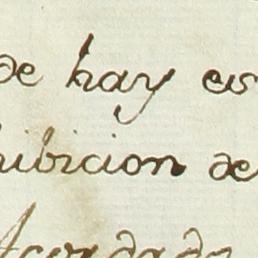 de hay es
hibicion de
Acordado